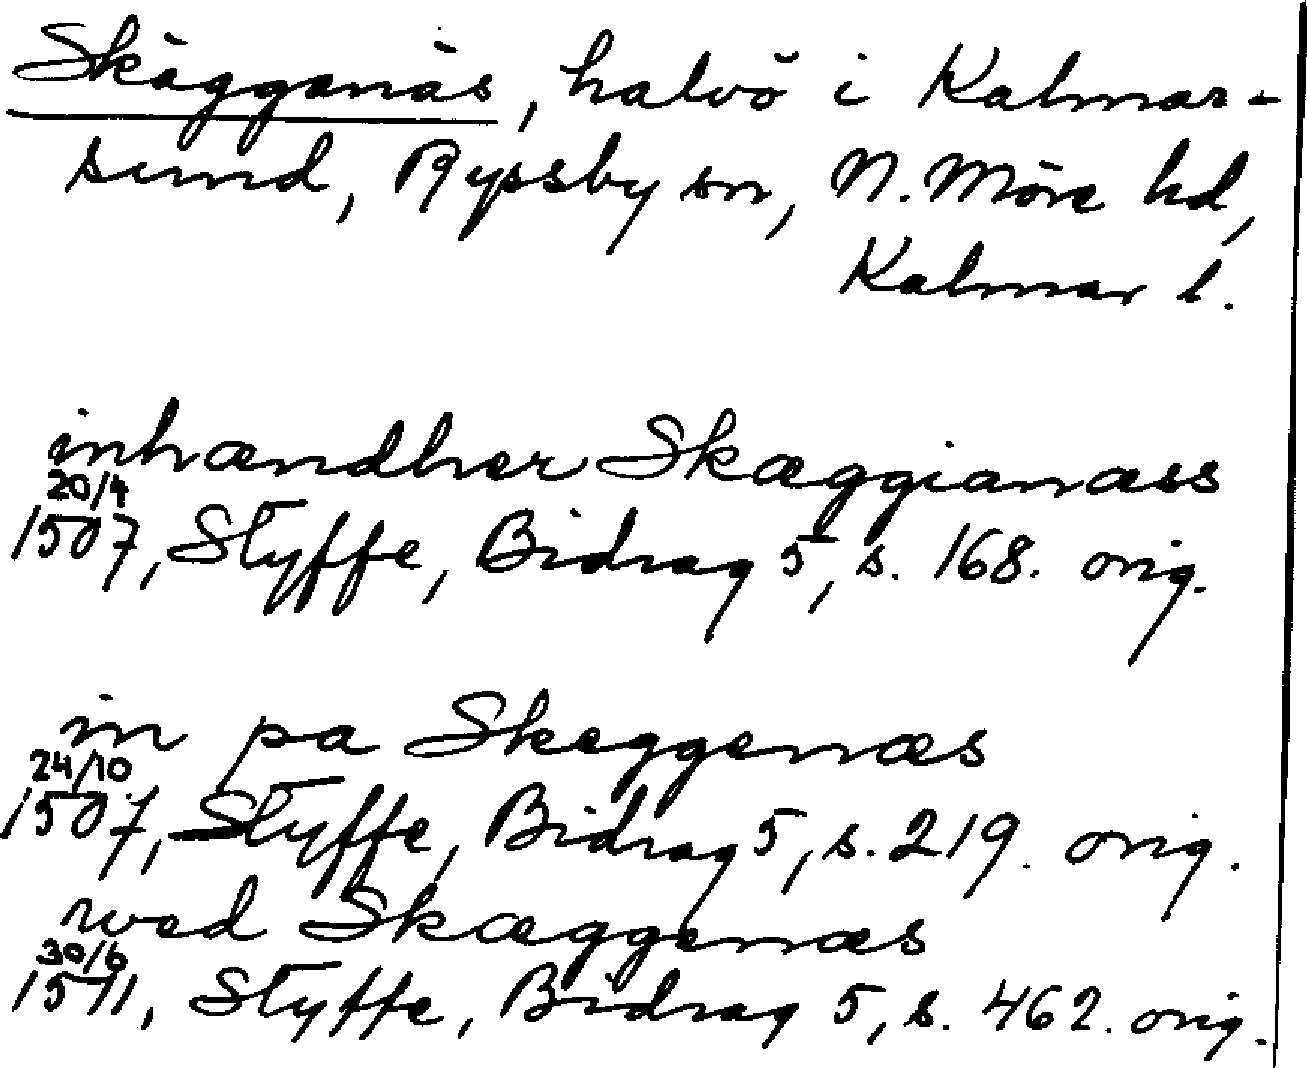 Skäggenäs, halvö i Kalmar-
sund, Ryssby sn, N. Möre hd,
Kalmar l.
inhændher Skæggianæss
20/4
1507, Styffe, Bidrag 5, s. 168. orig.
in pa Skeggenæs
24/10
1507, Styffe, Bidrag 5, s. 219. orig.
wed Skæggenæs
30/6
1511, Styffe, Bidrag 5, s. 462. orig.